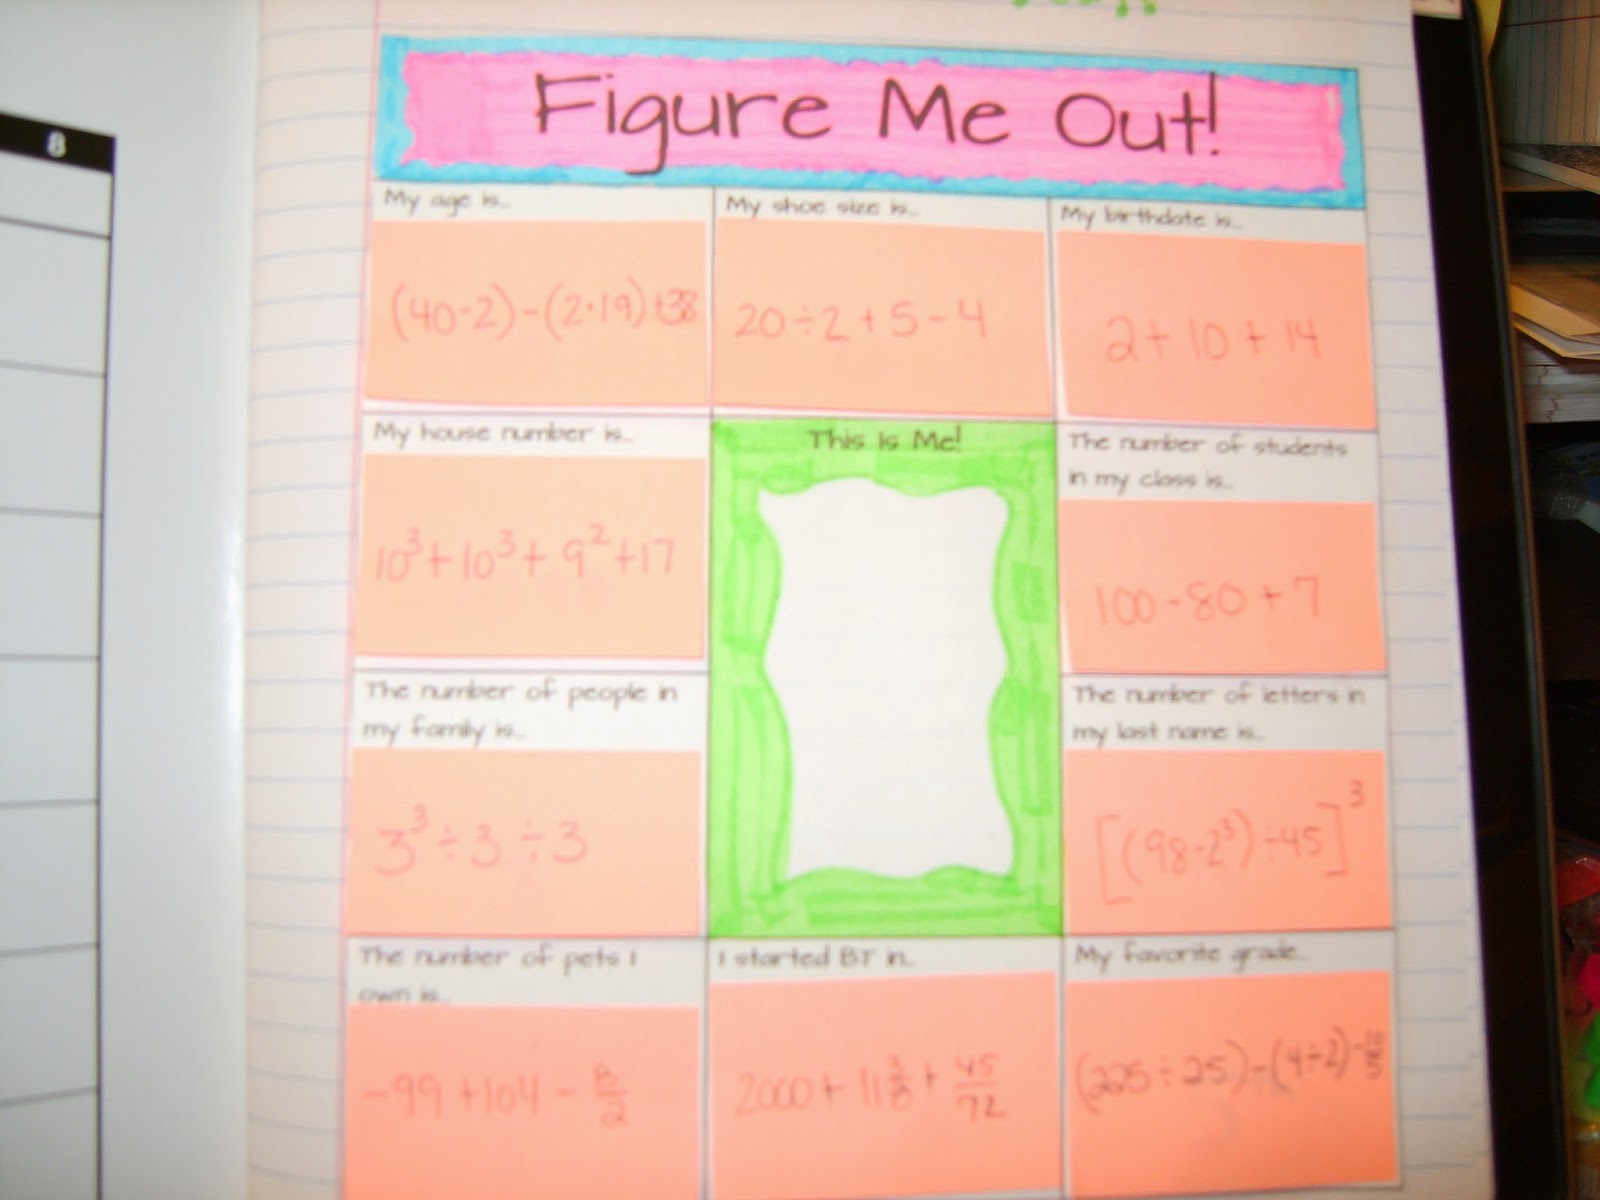 8
Figure Me Out!
My age is...
(40-2)-(2·19)+38
My shoe size is...
20÷2+5-4
My birthdate is...
2+10+14
My house number is...
10³+10³+9²+17
This Is Me!
The number of students
in my class is...
100-80+7
The number of people in
my family is...
3³÷3÷3
The number of letters in
my last name is...
[(98-2³)÷45]³
The number of pets I
own is...
-99+104-
I started BT in...
2000+11 + 45/72
My favorite grade...
(225÷25)-(4÷2)-